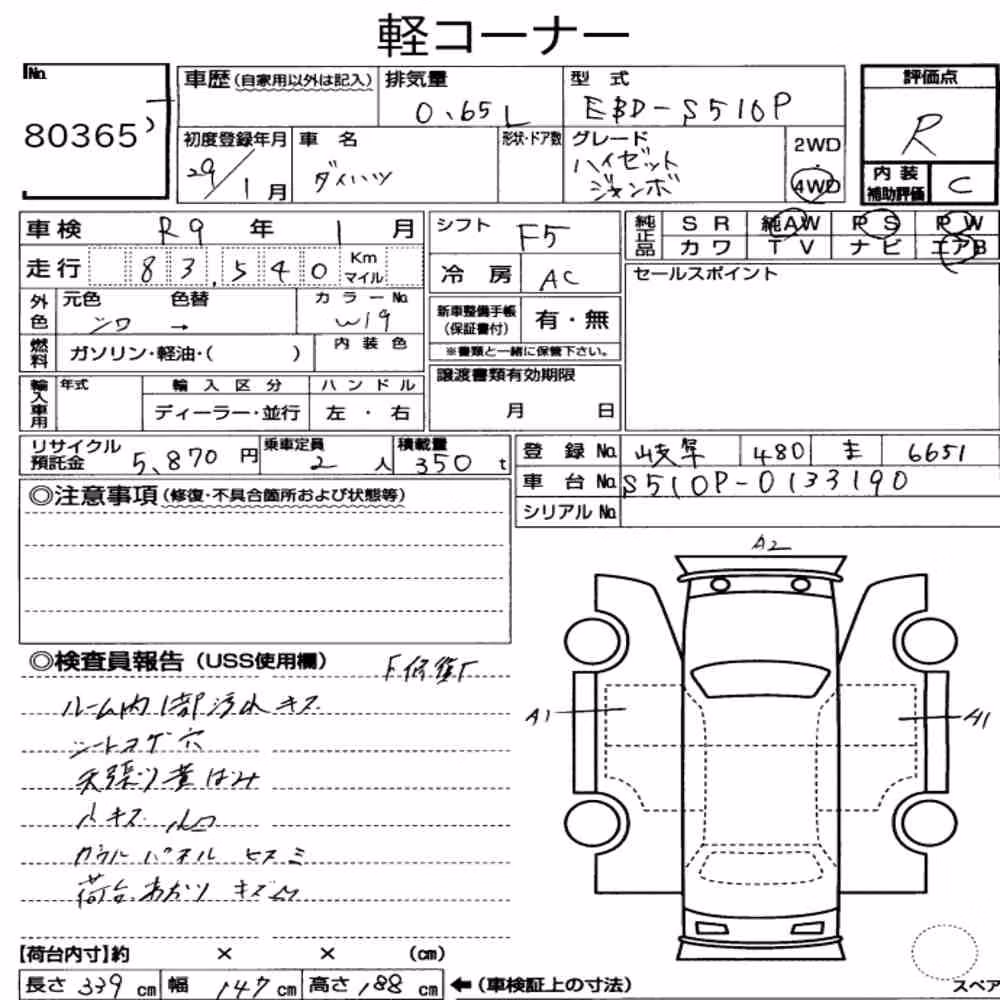 軽コーナー
No. 80365
車歴(自家用以外は記入)
排気量 0.65L
型式 EBD-S510P
評価点 R
初度登録年月 29/1月
車名 ダイハツ
形状・ドア数
グレード ハイゼット ジャンボ
2WD
4WD
内装補助評価 C
車検 R9年 1月
走行 83,540 Km マイル
シフト F5
冷房 AC
純正品 SR 純AW PS PW
カワ TV ナビ エアB
セールスポイント
外色 元色 シロ 色替 → カラーNo. W19
燃料 ガソリン・軽油・( ) 内装色
新車整備手帳(保証書付) 有・無
※書類と一緒に保管下さい。
輸入車用 年式 輸入区分 ハンドル
ディーラー・並行 左・右
譲渡書類有効期限
月 日
リサイクル預託金 5,870円
乗車定員 2人
積載量 350 t
登録No. 岐阜 480 ま 6651
車台No. S510P-0133190
シリアルNo.
◎注意事項(修復・不具合箇所および状態等)
◎検査員報告(USS使用欄)
ルーム内1部汚れキズ
シートコゲ穴
天張り
小キズ
荷台あおりキズ
A2
A1
A1
【荷台内寸】約 × × (cm)
長さ 339 cm 幅 147 cm 高さ 188 cm ←(車検証上の寸法)
スペア